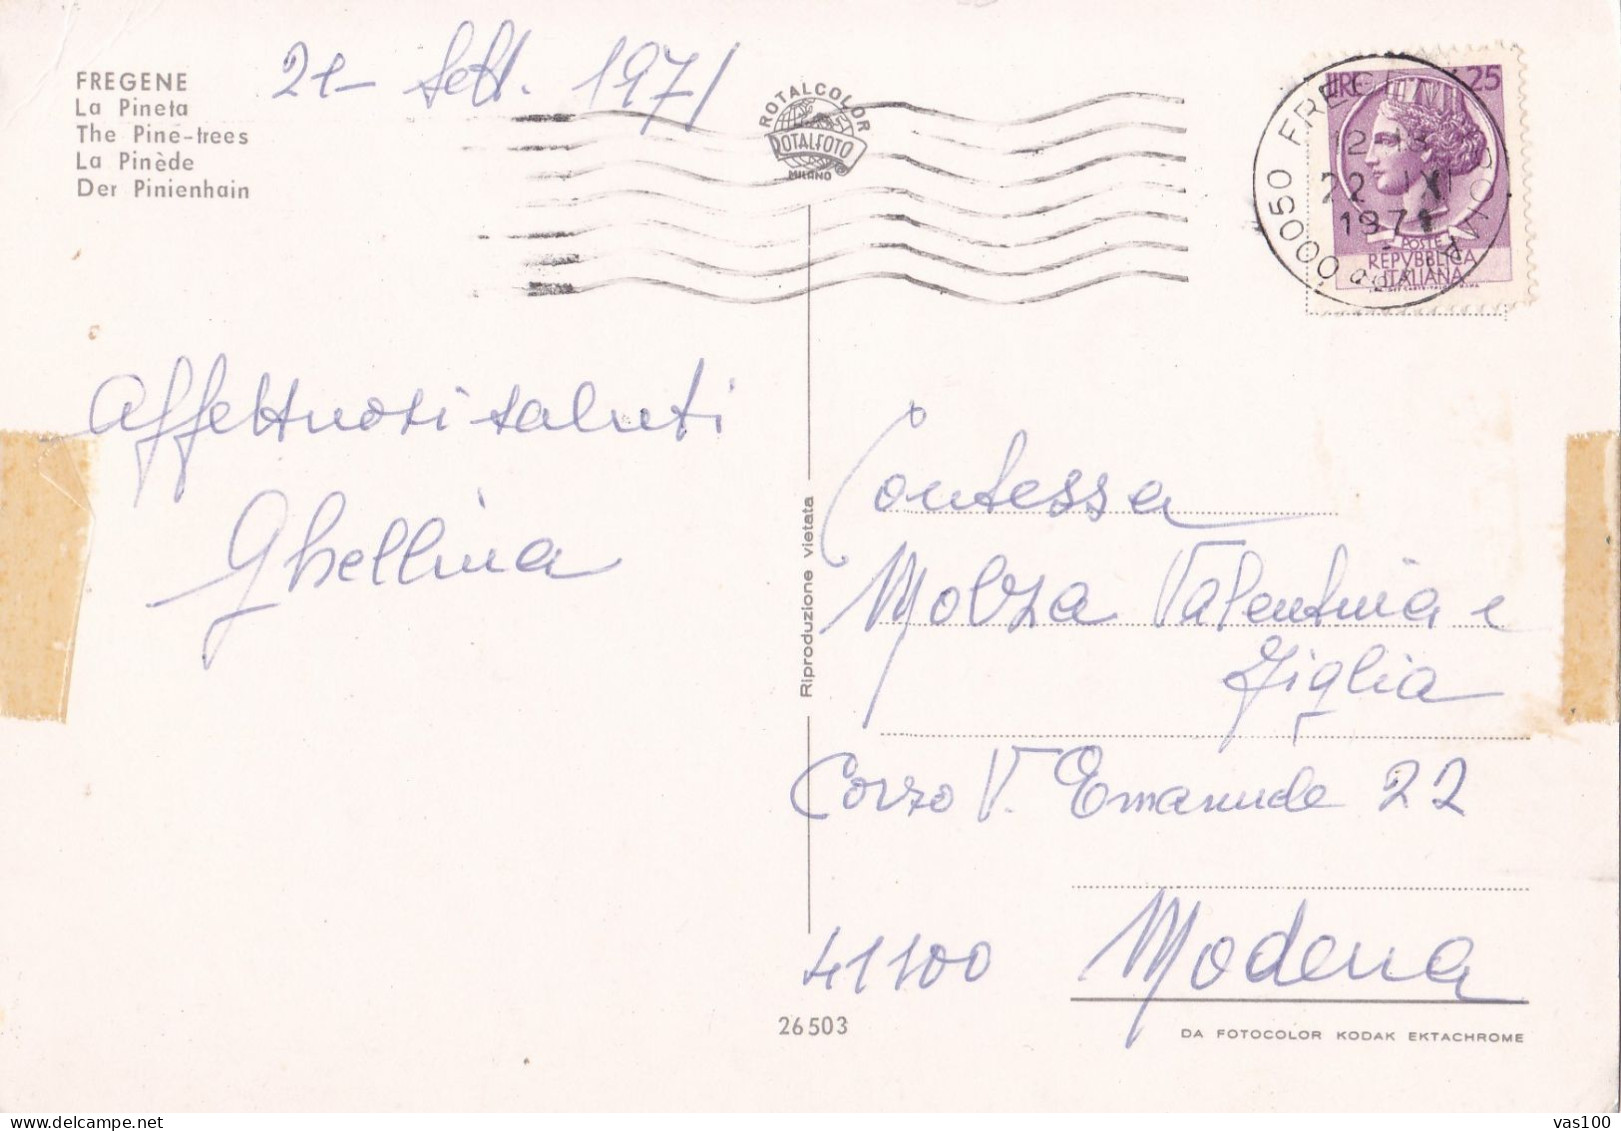 FREGENE
La Pineta
The Pine-trees
La Pinède
Der Pinienhain
21- Sett. 1971
ROTALCOLOR
ROTALFOTO
MILANO
LIRE 25
POSTE
REPVBBLICA
ITALIANA
00050 FREGENE
12-13
22 IX
1971
ROMA
Affettuosi saluti
Ghellina
Riproduzione vietata
Contessa
Molza Valentina e
Giglia
Corso V. Emanuele 22
41100 Modena
26503
DA FOTOCOLOR KODAK EKTACHROME
vas100